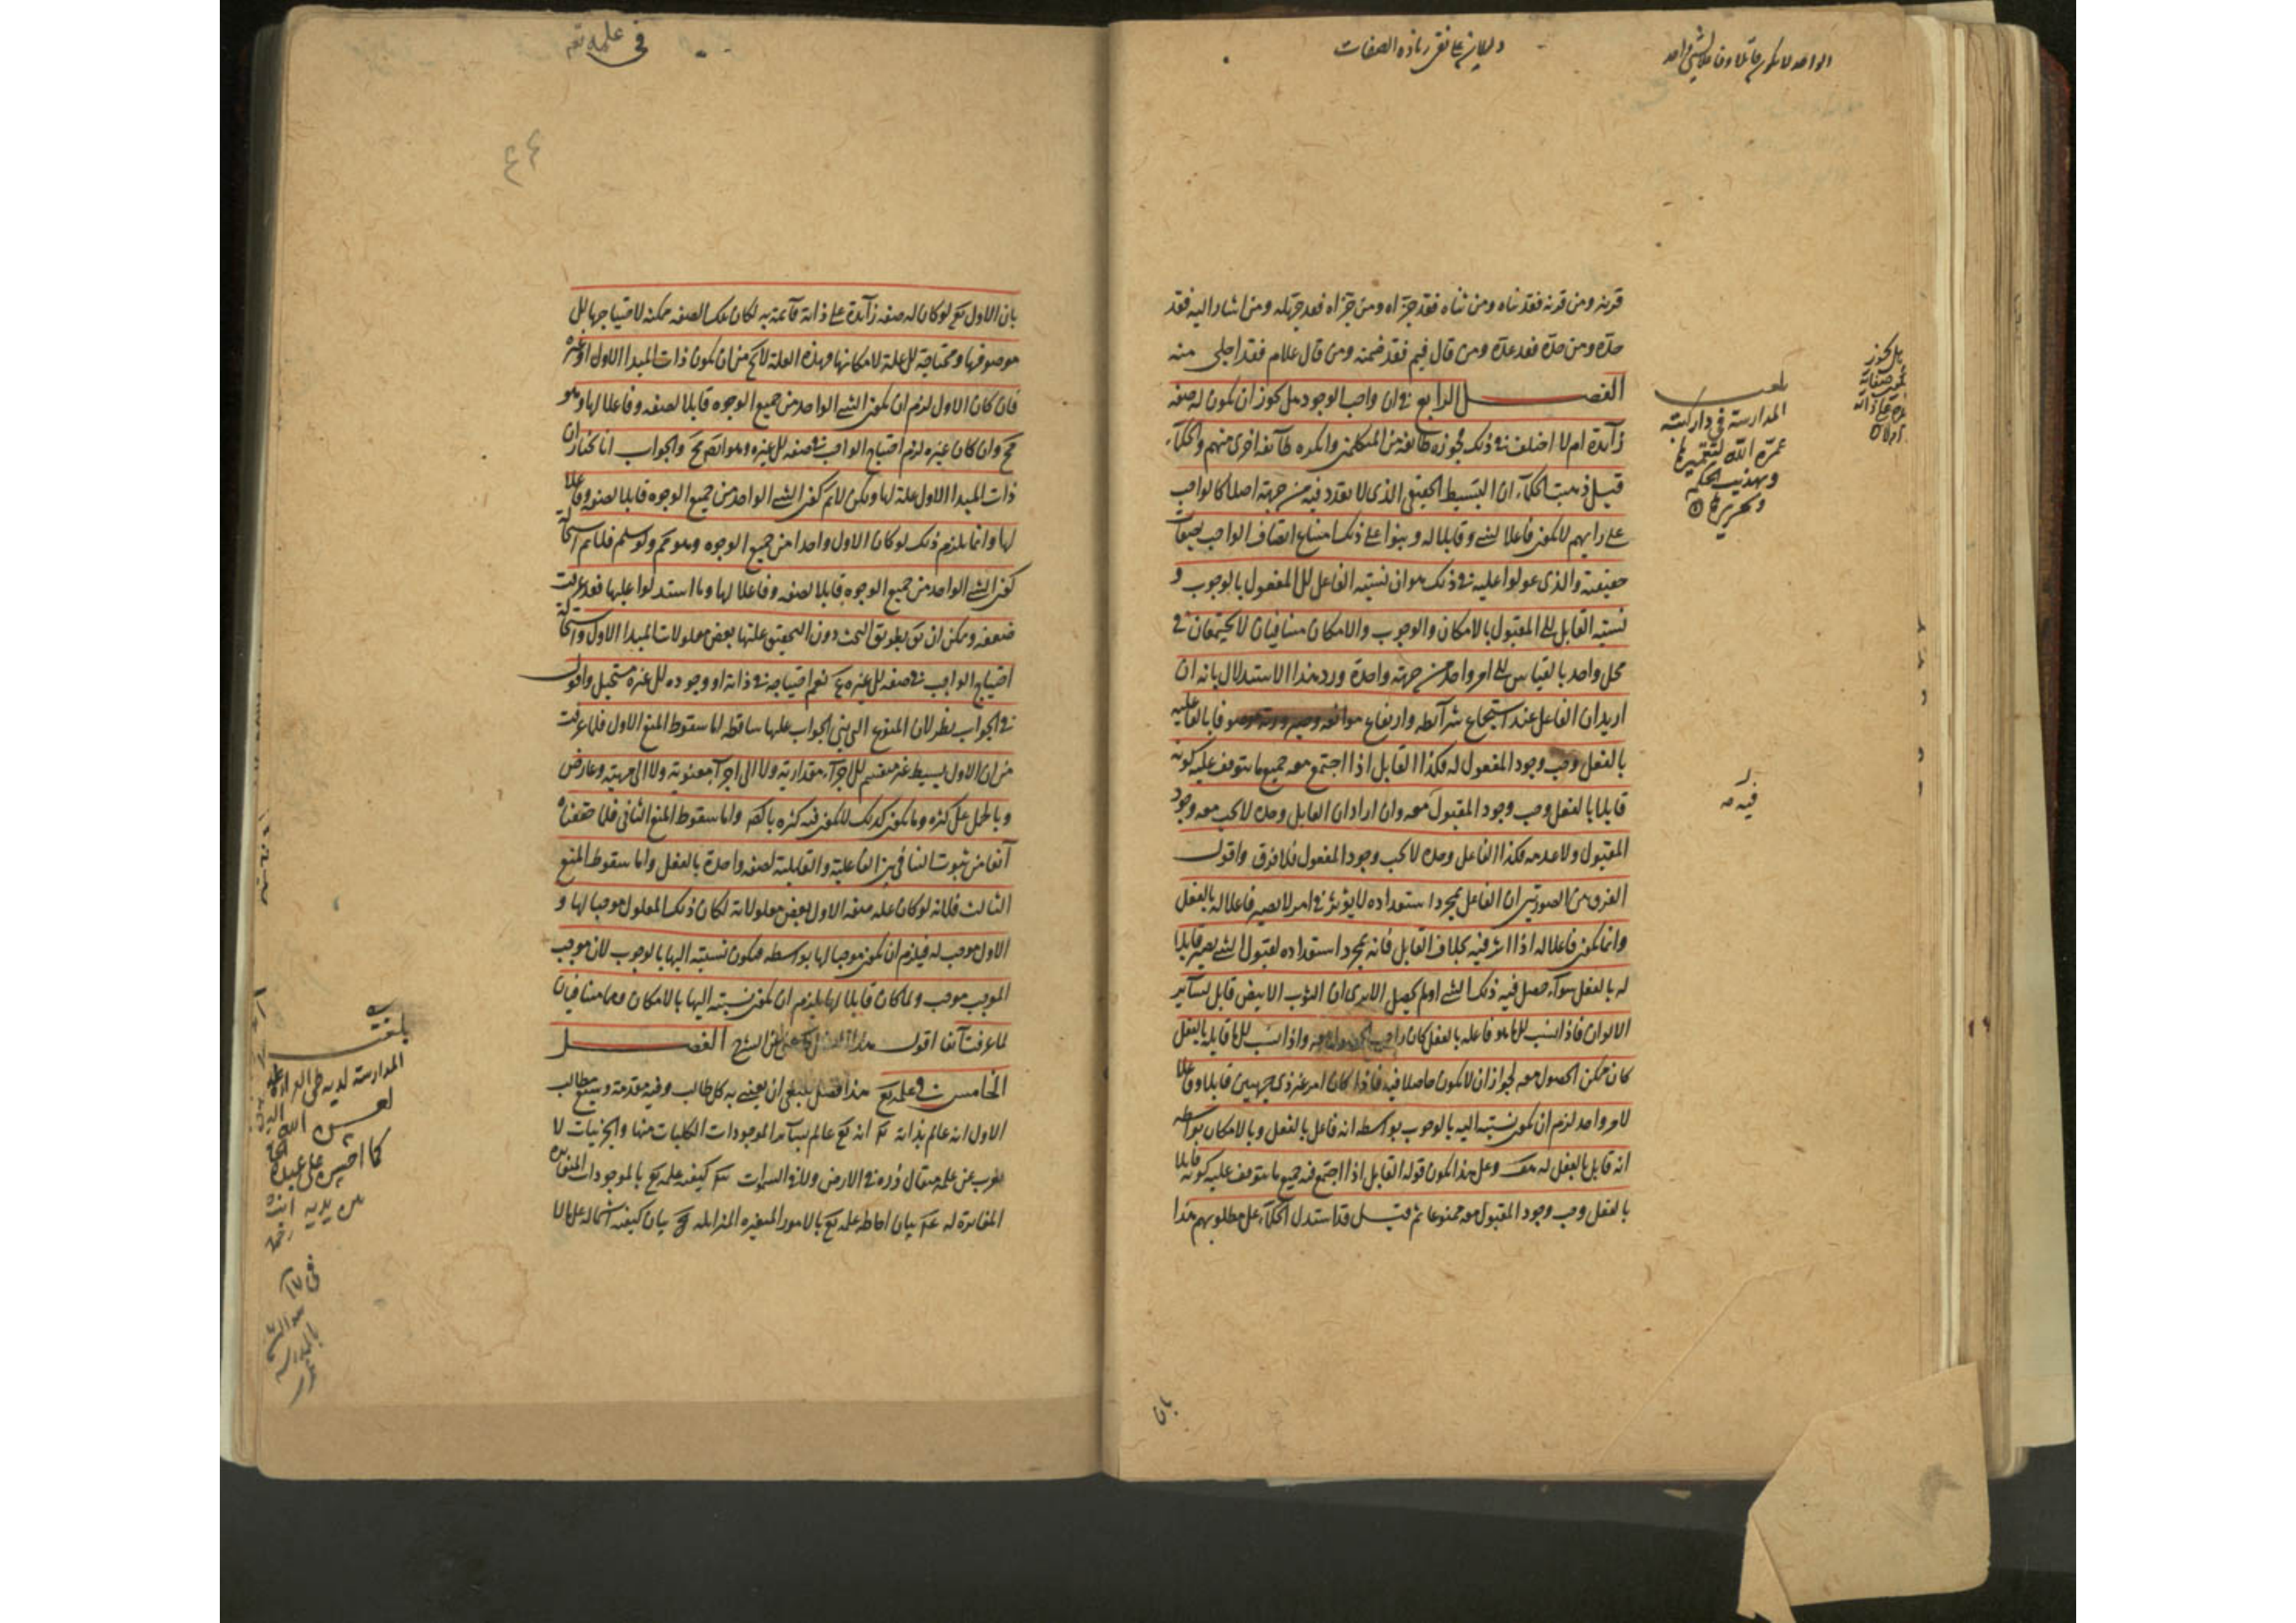 الواحد لا يكون قابلا وفاعلا لشي واحد
دليلان على نفي زيادة الصفات
قرنه ومن قرنه فقد ثناه ومن ثناه فقد جزّاه ومن جزّاه فقد جهله ومن اشار اليه فقد
حدّه ومن حدّه فقد عدّه ومن قال فيم فقد ضمنه ومن قال علام فقد اخلى منه
الفصل الرابع في ان واجب الوجود هل يجوز ان يكون له صفة
زآئدة ام لا اختلف في ذلك فجوزه طائفة من المتكلمين وانكره طآئفة اخرى منهم والحكمآء
قيل ذهبت الحكمآء ان البسيط الحقيقي الذي لا تعدد فيه من جهة اصلا كالواجب
على رايهم لا يكون فاعلا لشئ وقابلا له وبنوا على ذلك امتناع اتصاف الواجب بصفات
حقيقية والذي عولوا عليه في ذلك هو ان نسبة الفاعل الى المفعول بالوجوب و
نسبة القابل الى المقبول بالامكان والوجوب والامكان متنافيان لا يجتمعان في
محل واحد بالقياس الى امر واحد من جهة واحدة ورد هذا الاستدلال بانه ان
اريد ان الفاعل عند استجماع شرآئطه وارتفاع موانعه وصيرورته موصوفا بالفاعلية
بالفعل وجب وجود المفعول له فكذا القابل اذا اجتمع معه جميع ما يتوقف عليه كونه
قابلا بالفعل وجب وجود المقبول معه وان اراد ان القابل وحده لا يجب معه وجود
المقبول ولا عدمه فكذا الفاعل وحده لا يجب وجود المفعول فلا فرق واقول
الفرق بين الصورتين ان الفاعل بمجرد استعداده لا يؤثر في امر لا يصير فاعلا له بالفعل
وانما يكون فاعلا له اذا اثر فيه بخلاف القابل فانه بمجرد استعداده لقبول الشئ يصير قابلا
له بالفعل سوآء حصل فيه ذلك الشئ او لم يحصل الا يرى ان الثوب الابيض قابل لسآئر
الالوان فاذا انسب الى ما هو فاعله بالفعل كان واجب الحصول واذا نسب الى ما قابله بالفعل
كان ممكن الحصول معه لجواز ان لا يكون حاصلا فيه فاذا كان امر غير ذي جهتين قابلا وفاعلا
لامر واحد لزم ان يكون نسبته اليه بالوجوب بواسطة انه فاعل بالفعل وبالامكان بواسطة
انه قابل بالفعل له هف وعلى هذا يكون قوله القابل اذا اجتمع فيه جميع ما يتوقف عليه كونه قابلا
بالفعل وجب وجود المقبول معه ممنوعا ثم قيل قد استدل الحكمآء على مطلوبهم هذا
بان
هل يجوز
المدارسة في دار كتبه
عمّره الله لتعميرها
وتهذيب الحكم
وتحريرها
في علمه تعم
٤٤
بان الاول تع لو كان له صفة زآئدة على ذاته قآئمة به لكان تلك الصفة ممكنة لاحتياجها الى
موصوفها ومحتاجة الى علة لامكانها وهذه العلة لا يخ من ان يكون ذات المبدا الاول او غيره
فان كان الاول لزم ان يكون الشئ الواحد من جميع الوجوه قابلا لصفة وفاعلا لها وهو
مح وان كان غيره لزم احتياج الواجب في صفته الى غيره وهو ايضا مح والجواب انا نختار ان
ذات المبدا الاول علة لها ولكن لا يلزم كون الشئ الواحد من جميع الوجوه قابلا لصفة وفاعلا
لها وانما يلزم ذلك لو كان الاول واحدا من جميع الوجوه وهو مم ولو سلم فلا نم استحالة
كون الشئ الواحد من جميع الوجوه قابلا لصفة وفاعلا لها وما استدلوا عليها فقد عرفت
ضعفه ويمكن ان يق بطريق البحث دون التحقيق علتها بعض معلولات المبدا الاول واستحالة
احتياج الواجب في صفته الى غيره مم نعم احتياجه في ذاته او وجوده الى غيره مستحيل واقول
في الجواب نظر لان المنوع التي بني الجواب عليها ساقطة اما سقوط المنع الاول فلما عرفت
من ان الاول بسيط غير منقسم الى اجزآء مقدارية ولا الى اجزآء معنوية ولا الى مهية وعارض
وبالجملة على كثرة وما يكون كذلك لا يكون فيه كثرة بالكلية واما سقوط المنع الثاني فلما حققناه
آنفا من ثبوت التنافي بين الفاعلية والقابلية لصفة واحدة بالفعل واما سقوط المنع
الثالث فلانه لو كان علة صفة الاول بعض معلولاته لكان ذلك المعلول موجبا لها و
الاول موجب له فيلزم ان يكون موجبا لها بواسطة فيكون نسبته اليها بالوجوب لان موجب
الموجب موجب ولما كان قابلا لها يلزم ان يكون نسبته اليها بالامكان وهما متنافيان
لما عرفت آنفا اقول هذا الفصل
الخامس في علمه تع هذا فصل ينبغي ان يعتني به كل طالب وفيه مقدمة وسبع مطالب
الاول انه عالم بذاته انه تع عالم بسآئر الموجودات الكليات منها والجزئيات لا
يعزب عن علمه مثقال ذرة في الارض ولا في السموات كيفية علمه تع بالموجودات
المغايرة له بيان احاطة علمه تع بالامور المتغيرة المتزايلة بيان كيفية اشتماله على ما لا
بلغت
المدارسة لديه
كما احسن على عبيده
بالمدرسة